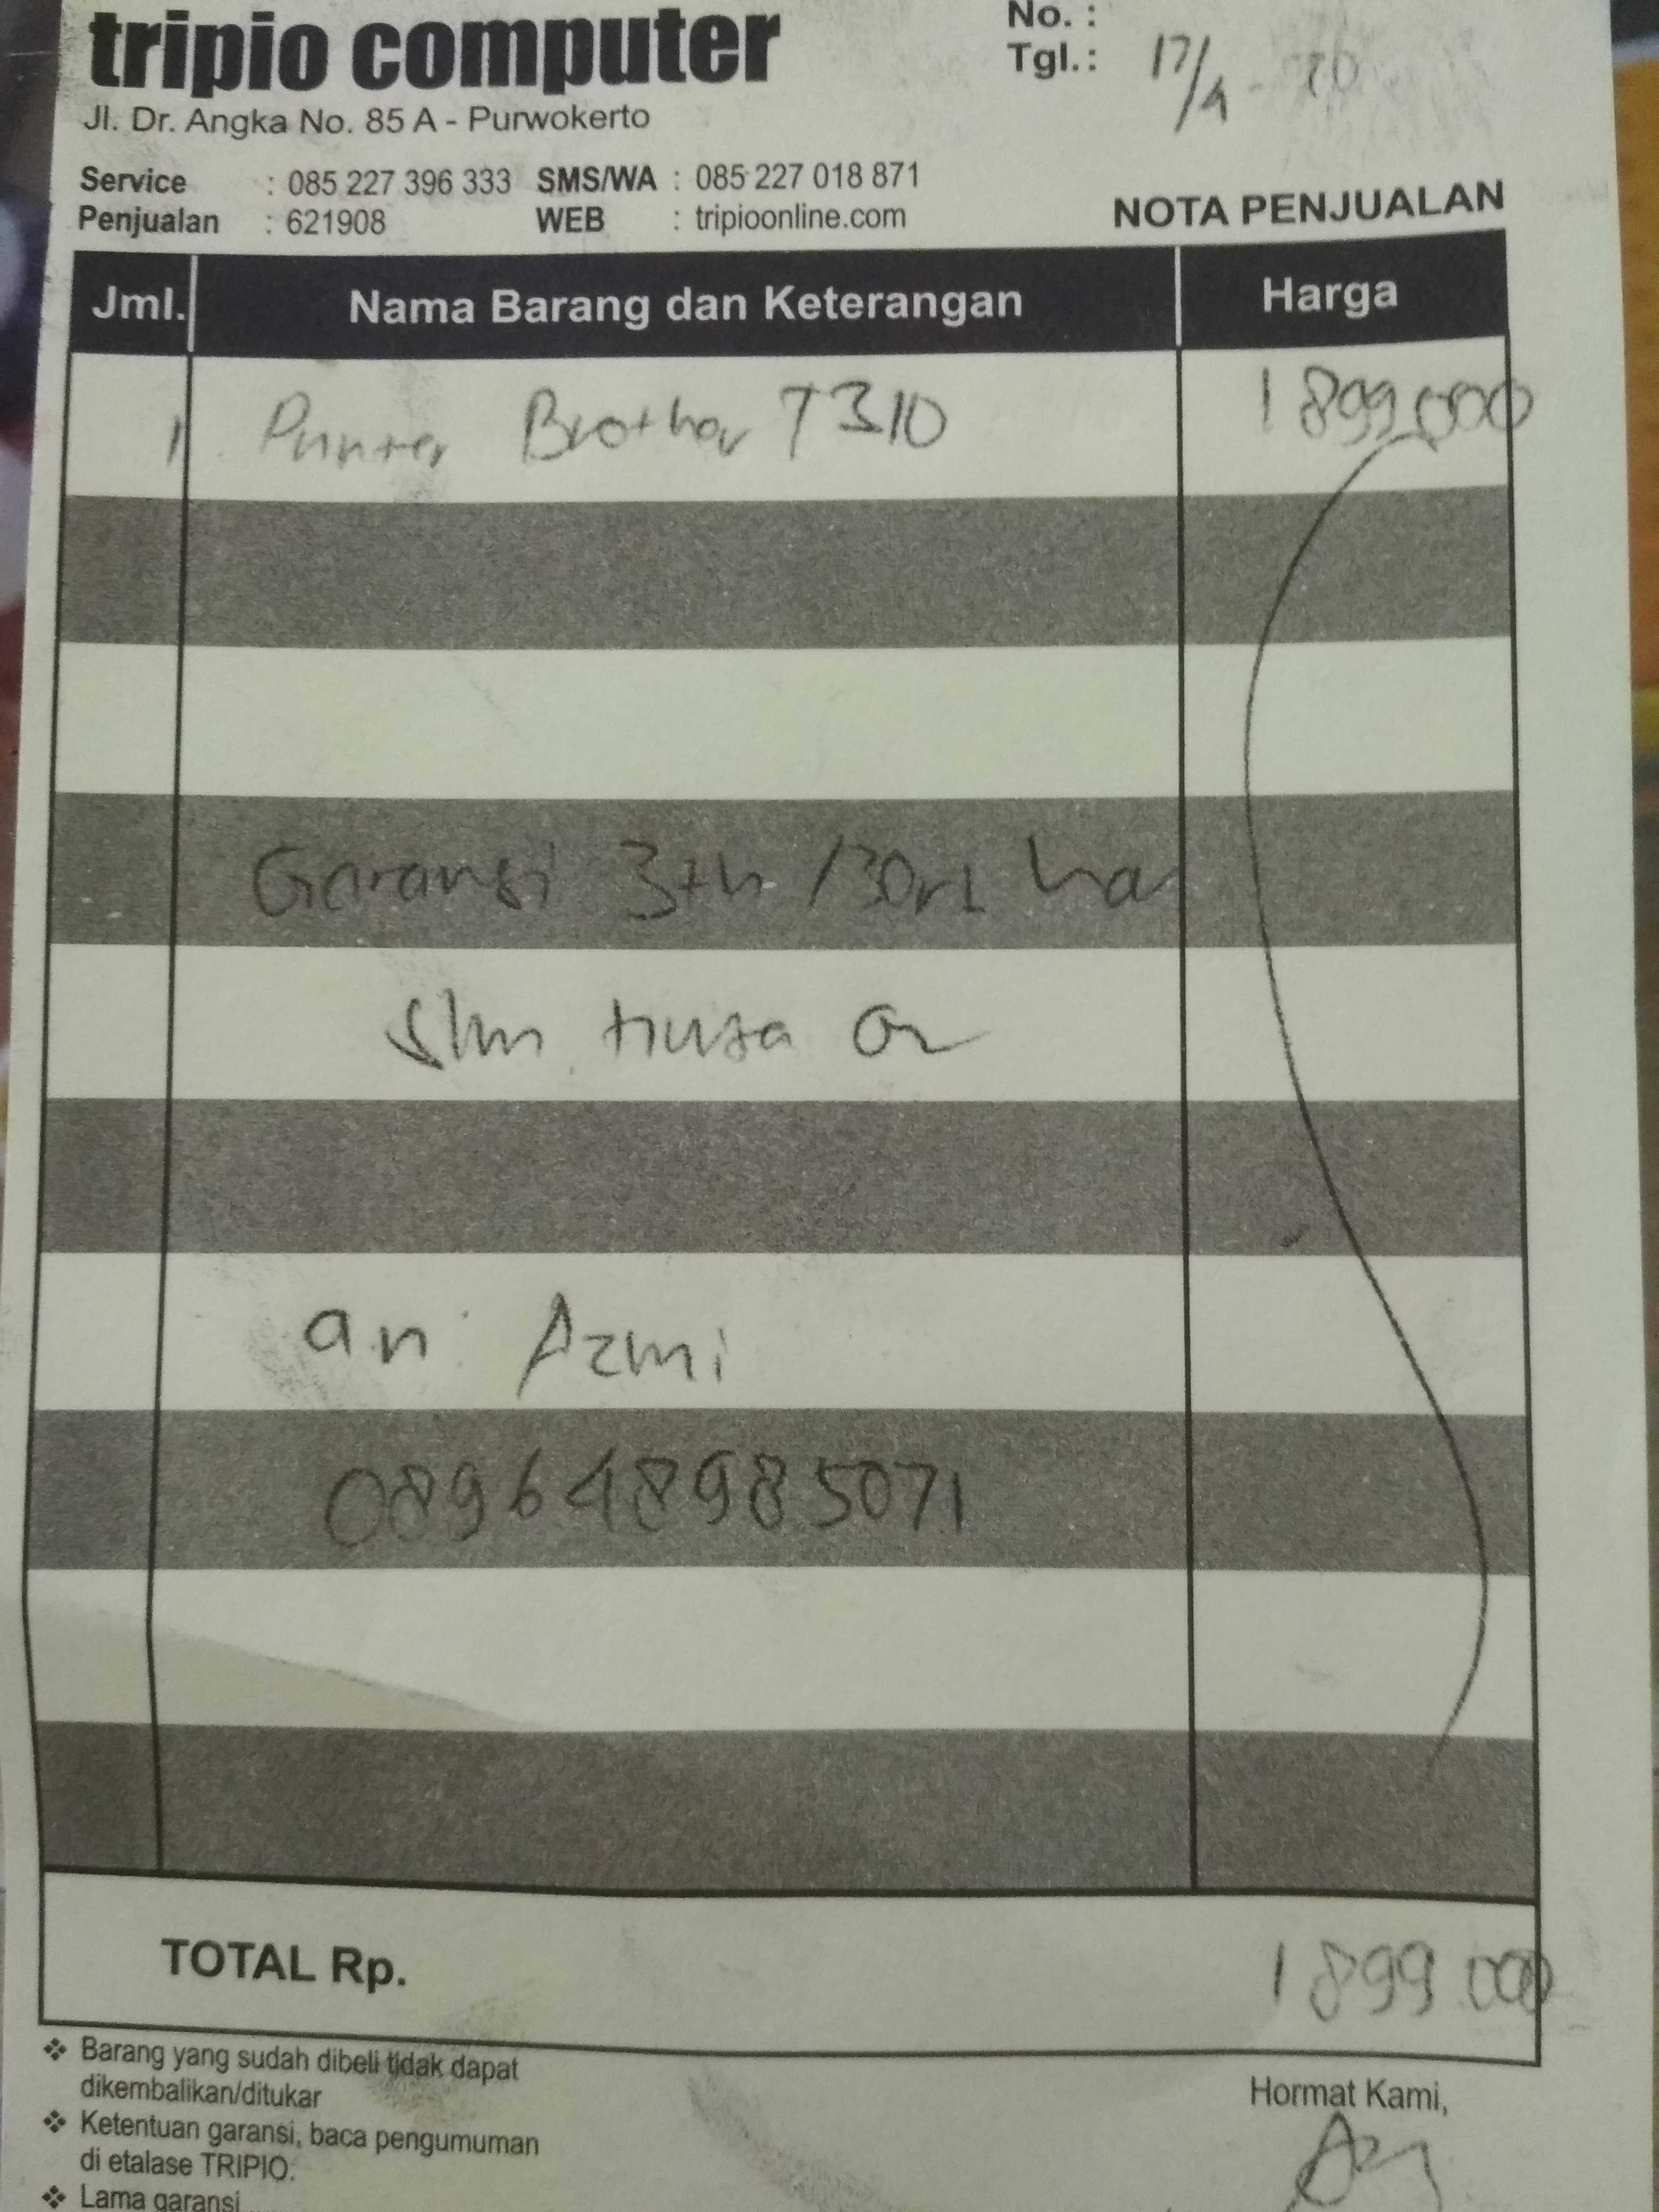 tripio computer
No. :
Tgl.: 17/4 - 20
Jl. Dr. Angka No. 85 A - Purwokerto
Service : 085 227 396 333 SMS/WA : 085 227 018 871
Penjualan : 621908 WEB : tripioonline.com
NOTA PENJUALAN
Jml. Nama Barang dan Keterangan Harga
1 Printer Brother T310 1 899.000
Garansi 3th /30rb
an Azmi
089648985071
TOTAL Rp. 1 899.000
❖ Barang yang sudah dibeli tidak dapat
dikembalikan/ditukar
❖ Ketentuan garansi, baca pengumuman
di etalase TRIPIO.
❖ Lama garansi
Hormat Kami,